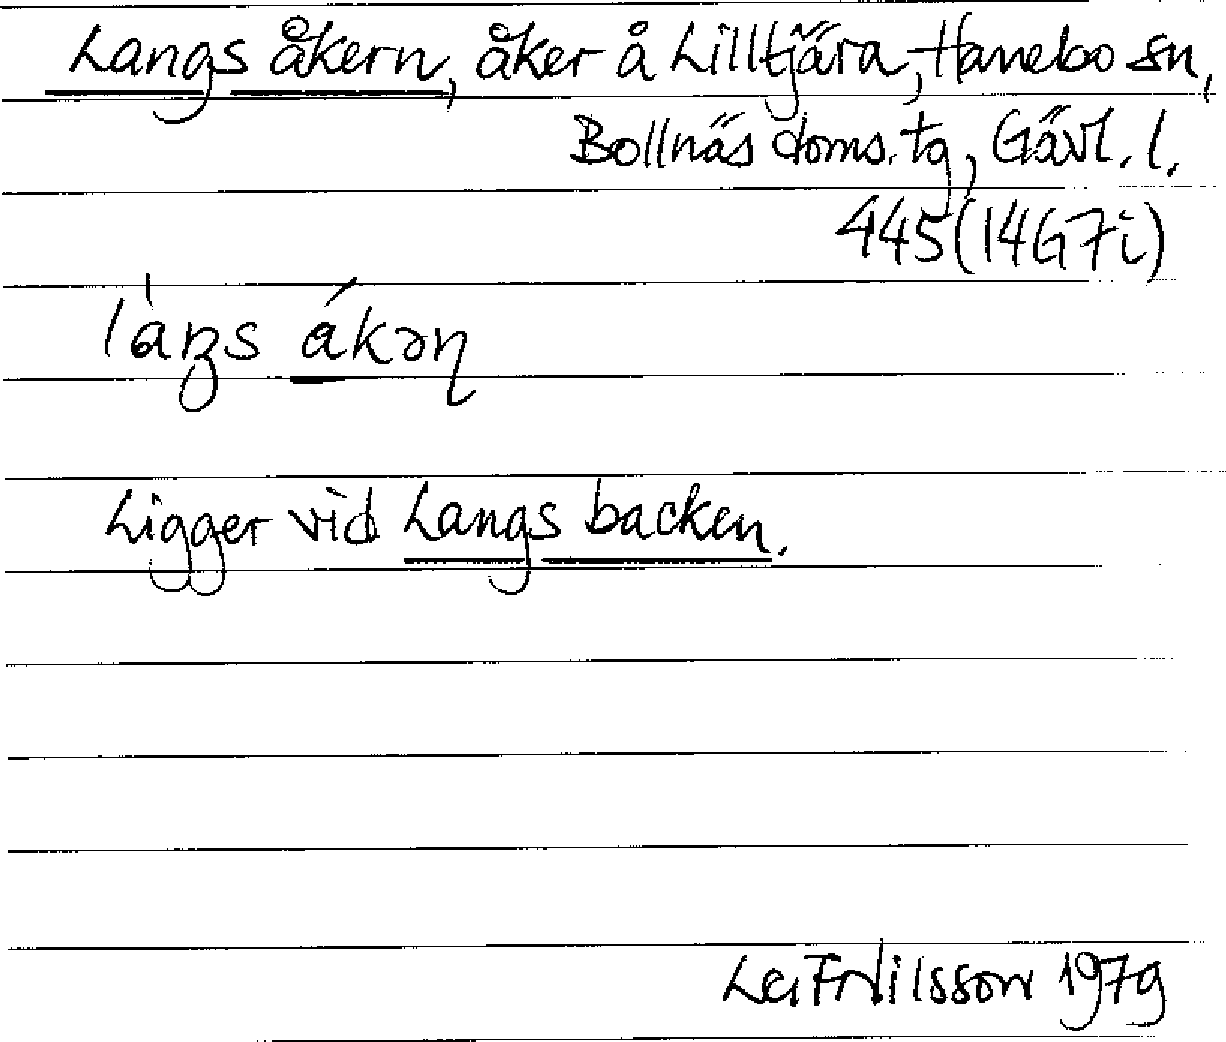 Langs åkern, åker å Lilltjära, Hanebo sn,
Bollnäs doms. tg, Gävl. l.
445 (14G7i)
Ligger vid Langs backen.
Leif Nilsson 1979